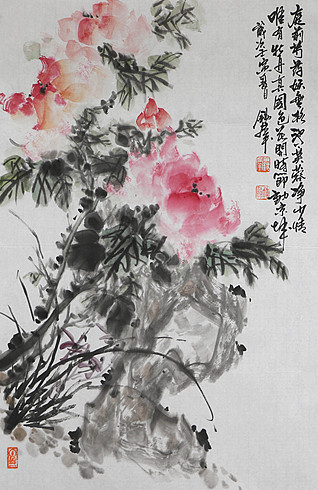 庭前芍药妖無格池上芙蕖净少情
唯有牡丹真国色花開時節動京城
歲次寅